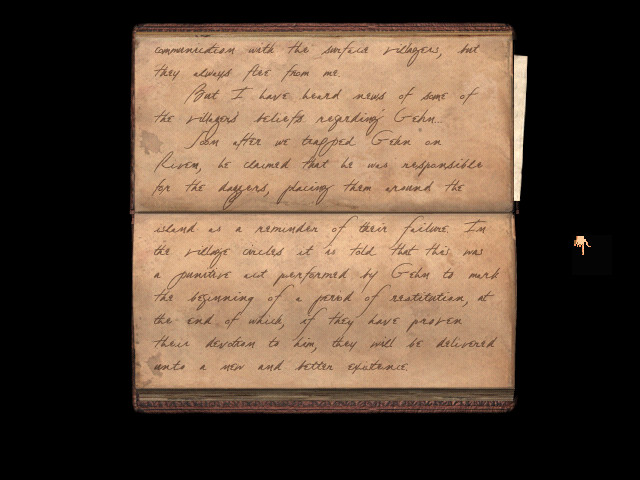 communication with the surface villagers, but
they always flee from me.
But I have heard news of some of
the villagers' beliefs regarding Gehn...
Soon after we trapped Gehn on
Riven, he claimed that he was responsible
for the daggers, placing them around the
island as a reminder of their failure. In
the village circles it is told that this was
a punitive act performed by Gehn to mark
the beginning of a period of restitution, at
the end of which, if they have proven
their devotion to him, they will be delivered
unto a new and better existence.